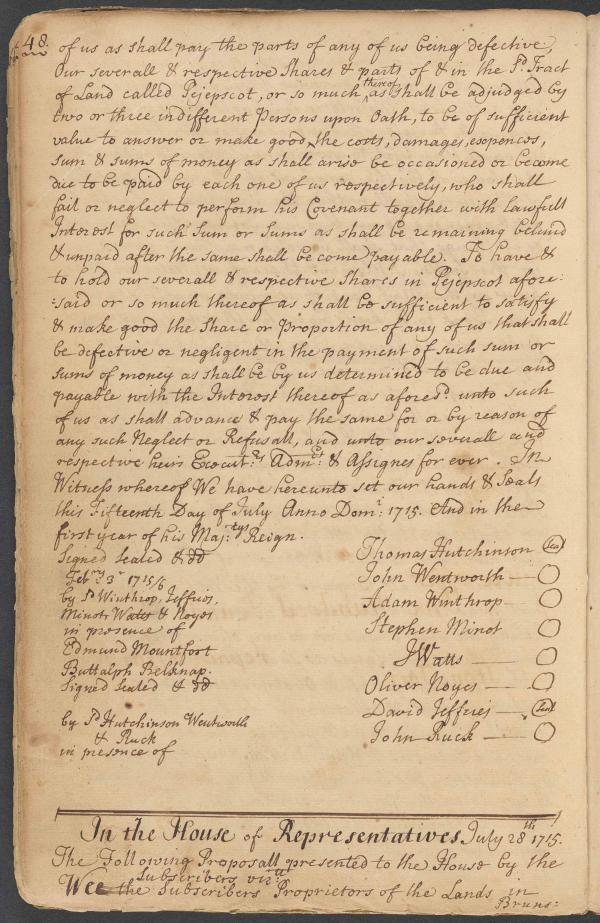 48.
of us as shall pay the parts of any of us being defective,
Our severall & respective Shares & parts of & in the Sd Tract
of Land called Pejepscot, or so much thereof as shall be adjudged by
two or three indifferent Persons upon Oath, to be of sufficient
value to answer or make good the costs, damages, expences,
sum & sums of money as shall arise be occasioned or become
due to be paid by each one of us respectively, who shall
fail or neglect to perform his Covenant together with lawfull
Interest for such Sum or Sums as shall be remaining behind
& unpaid after the same shall become payable. To have &
to hold our severall & respective Shares in Pejepscot afore:
:said or so much thereof as shall be sufficient to satisfy
& make good the Share or Proportion of any of us that shall
be defective or negligent in the payment of such sum or
sums of money as shall be by us determined to be due and
payable with the Interest thereof as aforesd. unto such
of us as shall advance & pay the same for or by reason of
any such Neglect or Refusall, and unto our severall and
respective heirs Execut:rs Adm:rs & Assignes for ever. In
Witness whereof We have hereunto set our hands & Seals
this Fifteenth Day of July Anno Dom: 1715. And in the
first year of his Maj:tys Reign.
Signed Sealed & dd
Feb:ry 3d 1715/6
by Sd Winthrop, Jeffries,
Minot Watts & Noyes
in presence of
Edmund Mountfort
Buttalph Belknap.
Signed Sealed & dd
by Sd Hutchinson Wentworth
& Ruck
in presence of
Thomas Hutchinson Seal
John Wentworth
Adam Winthrop
Stephen Minot
J Watts
Oliver Noyes
David Jeffries Seal
John Ruck
In the House of Representatives July 28th 1715.
The Following Proposall presented to the House by the
Subscribers vizt
Wee the Subscribers Proprietors of the Lands in
Bruns: